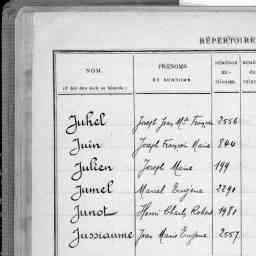 RÉPERTOIRE
NOM. PRÉNOMS ET SURNOMS. NUMÉROS
Juhel Joseph Jean Mie François 2556
Juin Joseph François Marie 844
Julien Joseph Marie 199
Jumel Marcel Eugène 2290
Junot Henri Charles Robert 1980
Jussiaume Jean Marie Eugène 2557